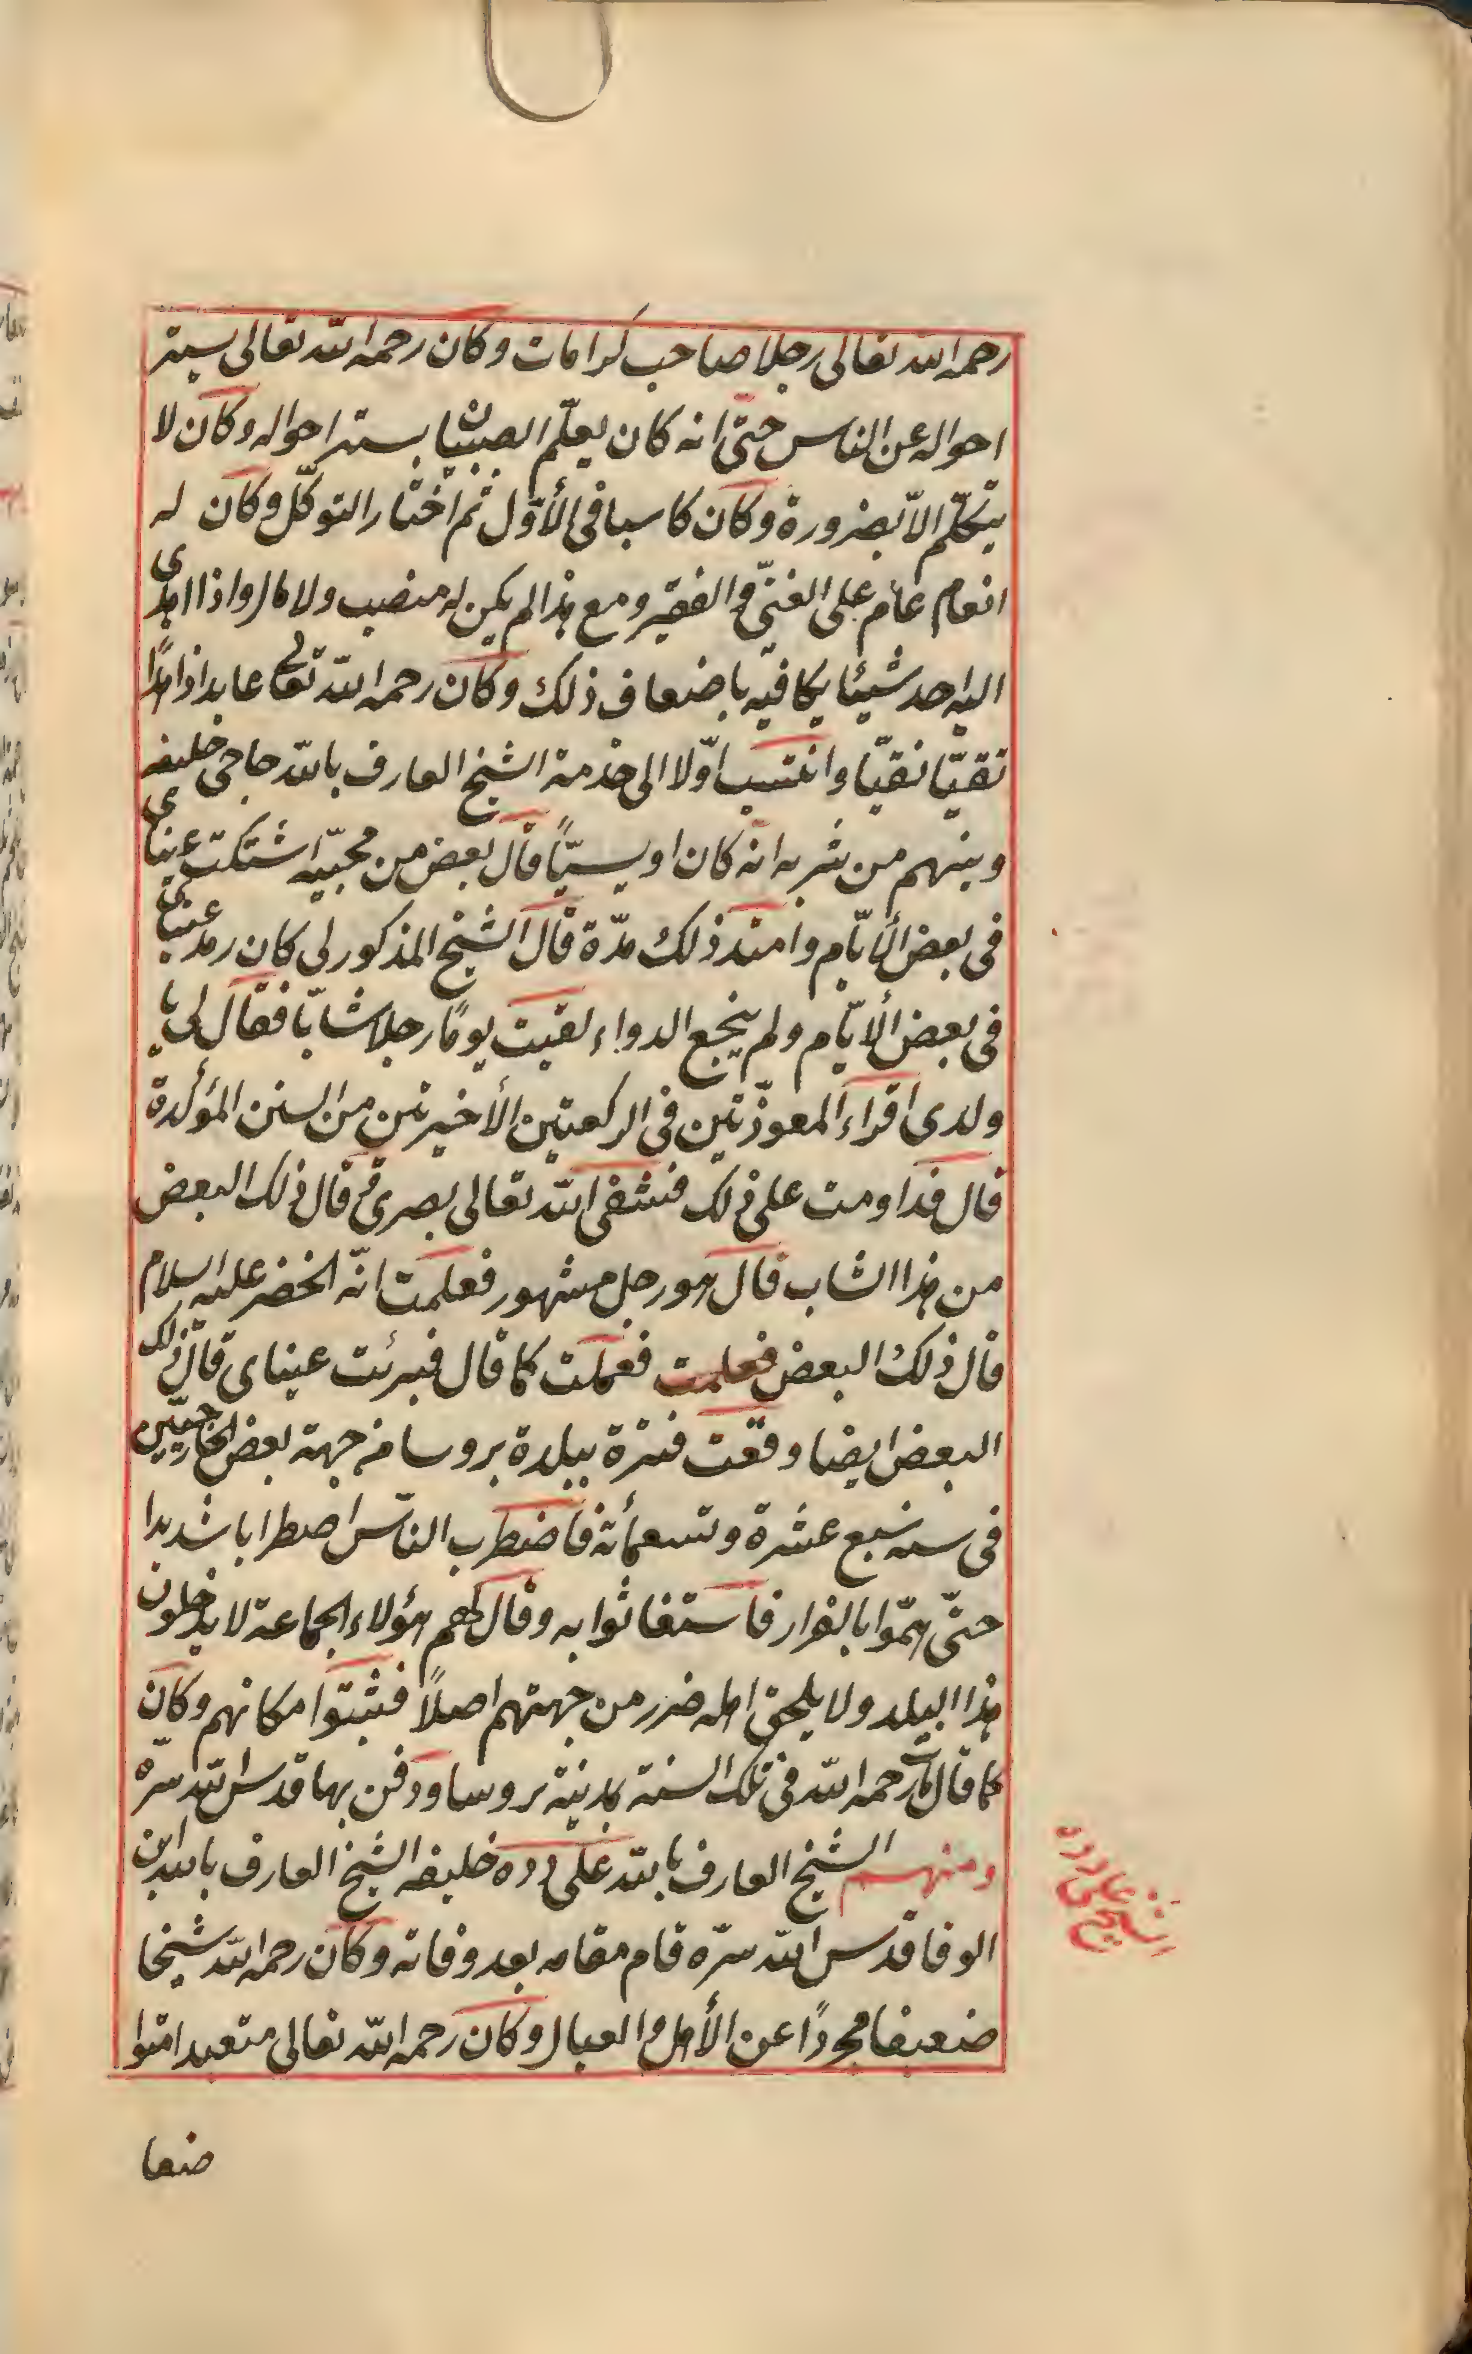 رحمه الله تعالى رجلا صاحب كرامات وكان رحمه الله تعالى يستر
احواله عن الناس حتى انه كان يعلّم الصبيان بستر احواله وكان لا
يتكلّم الاّ بضرورة وكان كاسبا فى الأوّل ثم اختار التوكّل وكان له
انعام عام على الغنىّ والفقير ومع هذا لم يكن له منصب ولا مال واذا اهدى
اليه احد شيئا يكافيه باضعاف ذلك وكان رحمه الله تعالى عابدا زاهدًا
تقيّا نقيّا وانتسب اوّلا الى خدمة الشيخ العارف بالله حاجى خليفه
وبينهم من شربه انه كان اويسيّاً قال بعض من محبيّه اشتكت عيناى
فى بعض الأيّام وامتد ذلك مدّة قال الشيخ المذكور لى كان رمد عيناى
فى بعض الأيّام ولم ينجع الدواء لقيت يومًا رجلا شابّا فقال لى يا
ولدى اقراء المعوذّتين فى الركعتين الأخيرتين من السنن المؤكدة
قال فداومت على ذلك فشفى الله تعالى بصرى قال ذلك البعض
من هذا الشاب قال هو رجل مشهور فعلمت انّه الخضر عليه السلام
قال ذلك البعض فعلمت ففعلت كما قال فبرئت عيناى قال ذلك
البعض ايضا وقعت فترة ببلدة بروسا من جهة بعض الخارجيّين
فى سنه سبع عشرة وتسعمائة فاضطرب الناّس اضطرابا شديدا
حتّى همّوا بالفرار فاستغاثوا به وقال لهم هؤلاء الجماعة لا يدخلون
هذا البلد ولا يلحق اهله ضرر من جهتهم اصلاً فثبتوا مكانهم وكان
كما قال مات رحمه الله فى تلك السنة بمدينة بروسا ودفن بها قدس الله سرّه
ومنهم الشيخ العارف بالله على دده خليفه الشيخ العارف بالله ابن
الوفا قدس الله سرّه قام مقامه بعد وفاته وكان رحمه الله شيخا
ضعيفا مجردًا عن الأهل والعيال وكان رحمه الله تعالى متعبدا متوا
شيخ على دده
ضعا